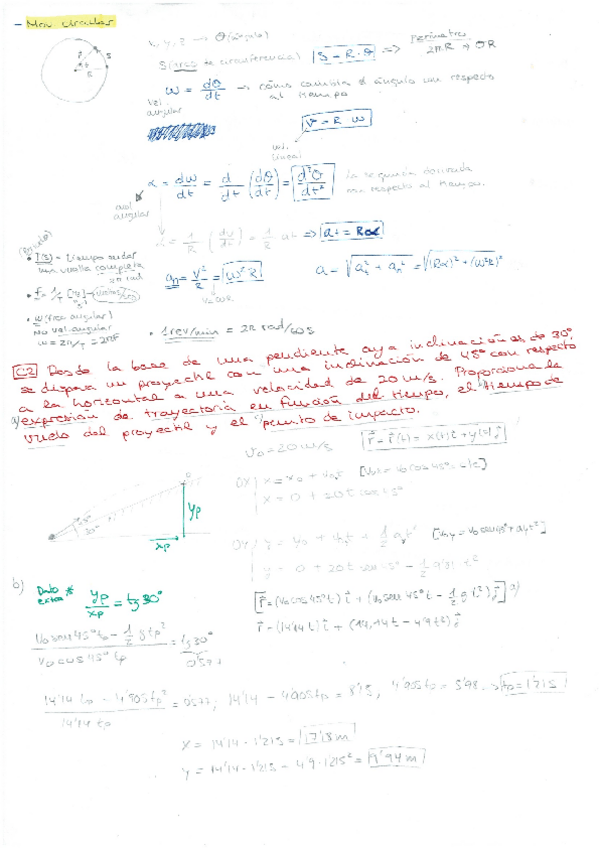 - Mov circular
x, y, z → θ (ángulo)
S (arco de circunferencia) S = R·θ => Perímetro 2πR → θR
ω = dθ/dt → cómo cambia el ángulo con respecto al tiempo
vel. angular
v = R ω
vel. lineal
α = dω/dt = d/dt (dθ/dt) = d²θ/dt² la segunda derivada con respecto al tiempo.
acel. angular
α = 1/R (dv/dt) = 1/R at => at = Rα
(Periodo)
• T(s) = tiempo en dar una vuelta completa 2π rad
an = v²/R = ω²R
v = ωR
a = √(at² + an²) = √((Rα)² + (ω²R)²)
• f = 1/T
• ω (frec angular) no vel. angular
ω = 2π/T = 2πf
• 1 rev/min = 2π rad/60s
C.2 Desde la base de una pendiente cuya inclinación es de 30°
se dispara un proyectil con una inclinación de 45° con respecto
a la horizontal a una velocidad de 20 m/s. Proporciona la
a) expresión de trayectoria en función del tiempo, el tiempo de
vuelo del proyectil y el punto de impacto.
v0 = 20 m/s
r = r(t) = x(t)i + y(t)j
OX x = x0 + v0xt
x = 0 + 20t cos 45°
45°
30°
yp
xp
OY y = y0 + v0yt + 1/2 at²
y = 0 + 20t sen 45° - 1/2 9'81 t²
b) Dato extra * yp/xp = tg 30°
r = (v0 cos 45° t) i + (v0 sen 45° t - 1/2 g t²) j a)
r = (14'14 t) i + (14,14t - 4'9t²) j
(v0 sen 45° tp - 1/2 g tp²)/(v0 cos 45° tp) = tg 30°
0'577
(14'14 tp - 4'905 tp²)/(14'14 tp) = 0'577; 14'14 - 4'905 tp = 8'15, 4'905 tp = 5'98 → tp = 1'21 s
x = 14'14 · 1'215 = 17'18 m
y = 14'14 · 1'215 - 4'9 · 1'215² = 9'94 m